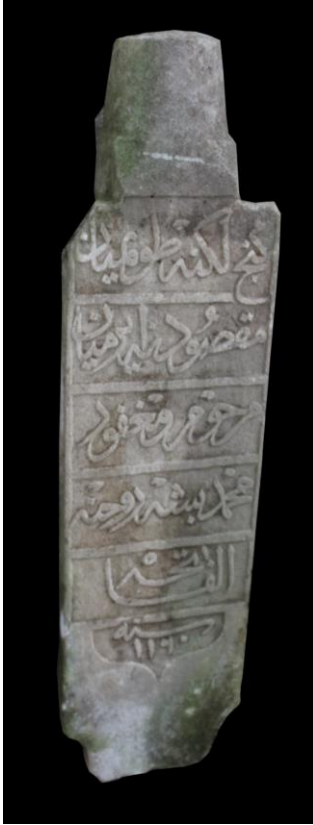 كنجلكنه طويميان
مقصودنه ايرميان
مرحوم و مغفور
محمد بشه روحنه
الفاتحه
سنه
١١٦٠